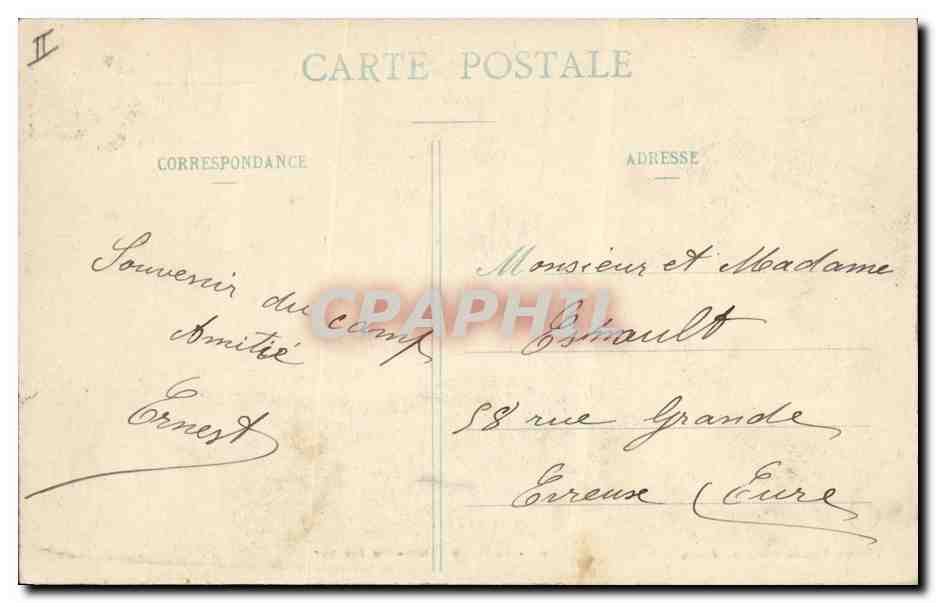 II
CARTE POSTALE
CORRESPONDANCE
ADRESSE
Souvenir du camp
Amitié
Ernest
Monsieur et Madame
Esnault
58 rue Grande
Evreux (Eure
CPAPHIL